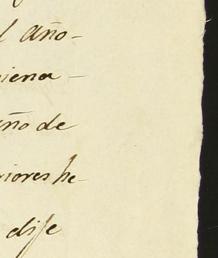 l año-
iena-
año de
riores he-
dise